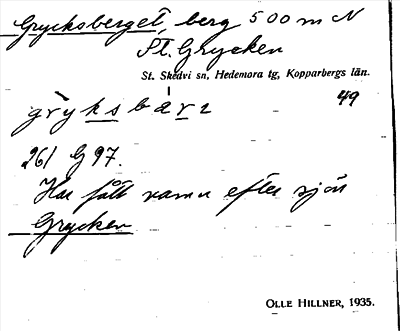 Grycksberget, berg 500 m N
St. Grycken
St. Skedvi sn, Hedemora tg, Kopparbergs län.
49
261 G 97.
Har fått namn efter sjön
Grycken
OLLE HILLNER, 1935.